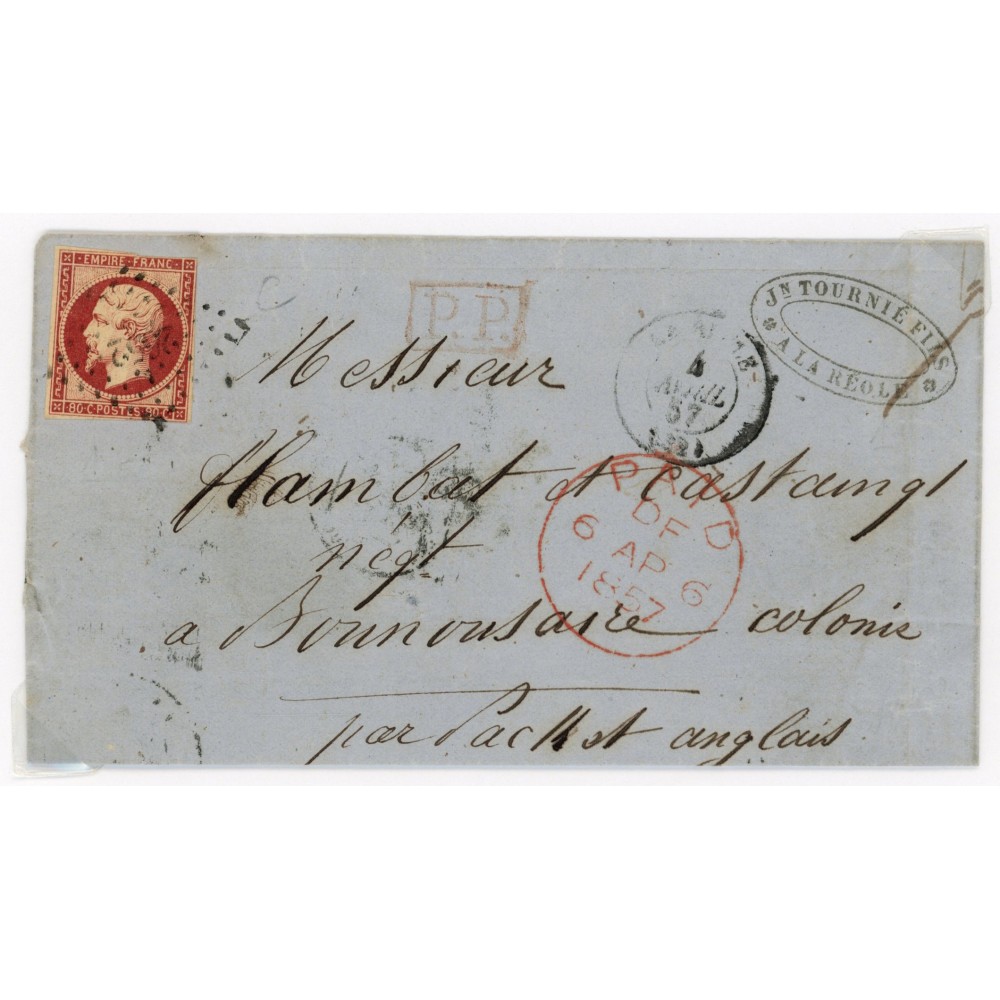 EMPIRE FRANC
80 C POSTES 80 C
C
P.P.
4
AVRIL
57
JN TOURNIÉ FILS
A LA RÉOLE
Messieur
Hambat et Castaingt
négt
a Bounousaire colonie
PAID
DF
6 AP 6
1857
par Packet anglais